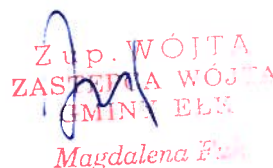 Z up. WÓJTA
ZASTĘPCA WÓJTA
GMINY EŁK
Magdalena